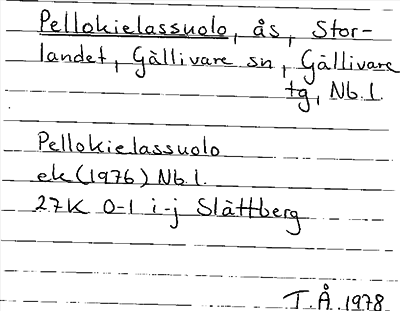 Pellokielassuolo, ås, Stor-
landet, Gällivare sn, Gällivare
tg, Nb.l.
Pellokielassuolo
ek (1976) Nb.l.
27K 0-1 i-j Slättberg
T.Å. 1978